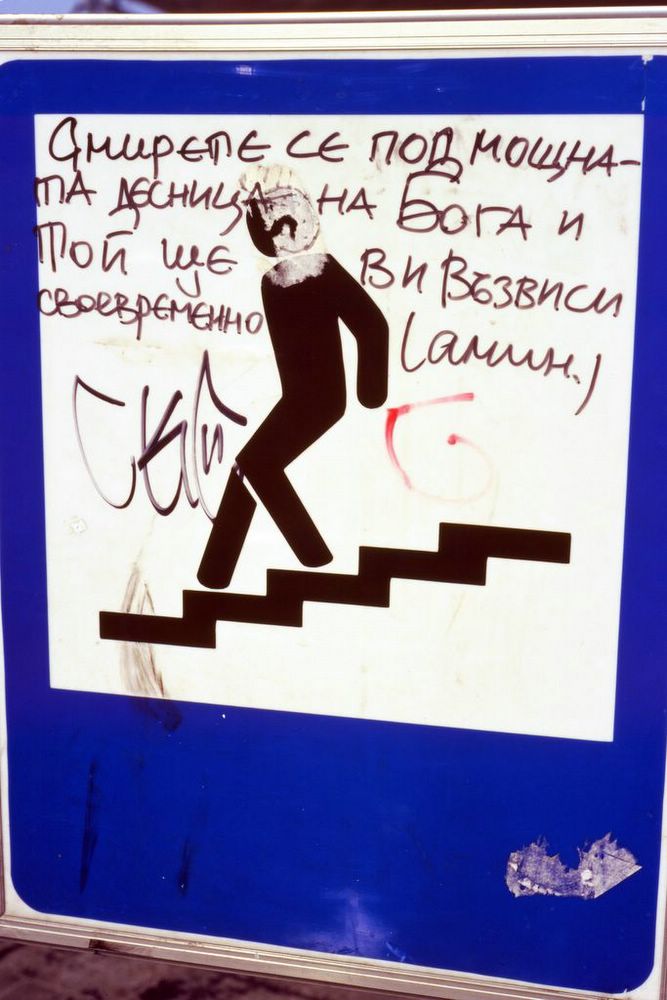 Смирете се под мощна-
та десница на Бога и
Той ще ви възвиси
своевременно
(амин.)